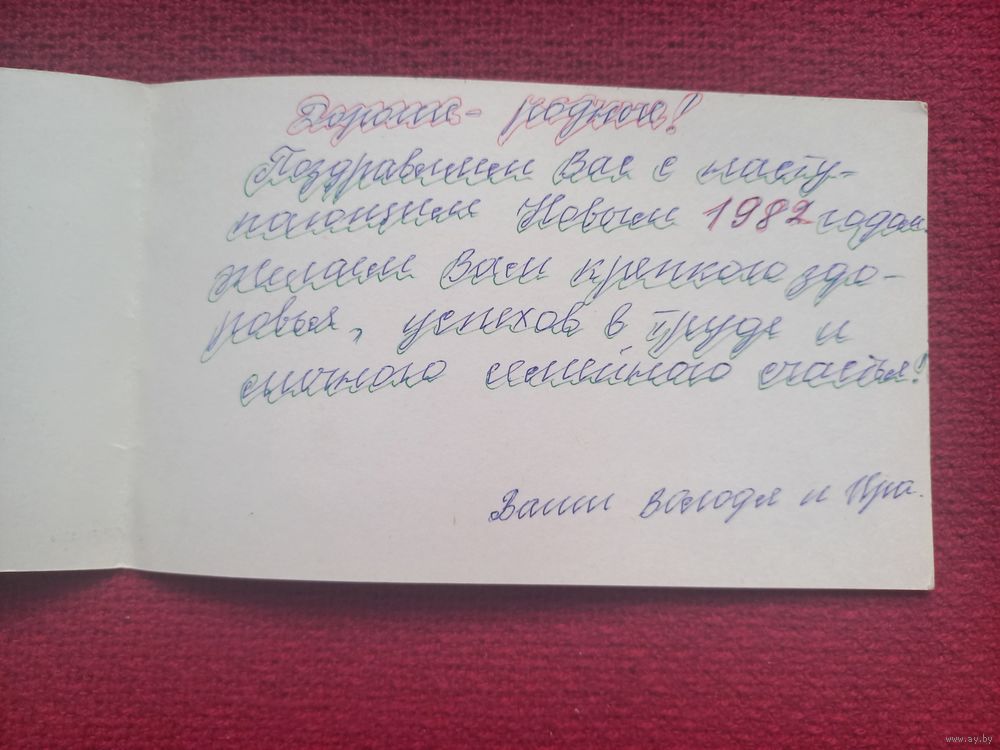 Дорогие - родные!
Поздравляем Вас с насту-
пающим Новым 1982 годом
Желаем Вам крепкого здо-
ровья, успехов в труде и
личного семейного счастья!
Ваши Володя и Ира.
www.ay.by